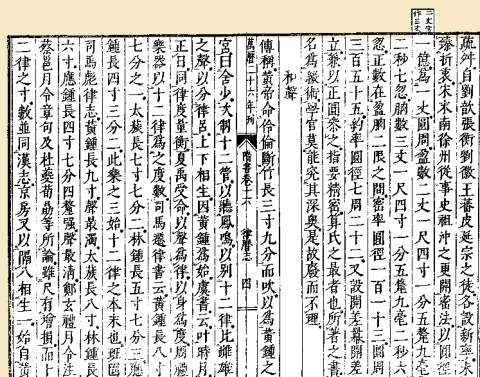 二丈當
作三丈
疏舛自劉歆張衡劉徽王蕃皮延宗之徒各設新率未
臻折衷宋末南徐州從事史祖沖之更開密法以圓徑
一億爲一丈圓周盈數二丈一尺四寸一分五釐九毫
二秒七忽朒數三丈一尺四寸一分五釐九毫二秒六
忽正數在盈朒二限之間密率圓徑一百一十三圓周
三百五十五約率圓徑七周二十二又設開差冪開差
立兼以正圓參之指要精密算氏之最者也所著之書
名爲綴術學官莫能究其深奧是故廢而不理
和聲
傳稱黃帝命伶倫斷竹長三寸九分而吹以爲黃鍾之
萬曆二十六年刊
隋書卷十六 律曆志 四
宮曰含少次制十二管以聽鳳鳴以別十二律比雌雄
之聲以分律呂上下相生因黃鍾爲始虞書云叶時月
正日同律度量衡夏禹受命以聲爲律以身爲度周禮
樂器以十二律爲之度數司馬遷律書云黃鍾長八寸
七分之一太簇長七寸七分二林鍾長五寸七分三應
鍾長四寸三分二此樂之三始十二律之本末也班固
司馬彪律志黃鍾長九寸聲最濁太簇長八寸林鍾長
六寸應鍾長四寸七分四釐強聲最清鄭玄禮月令注
蔡邕月令章句及杜夔荀勗等所論雖尺有增損而十
二律之寸數並同漢志京房又以隔八相生一始自黃